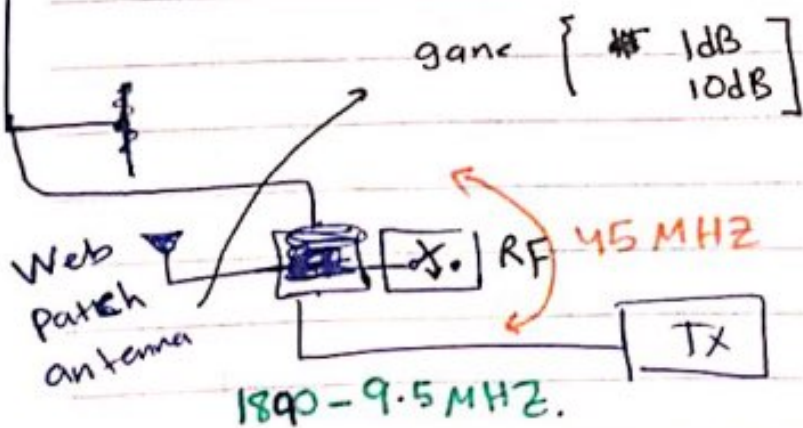 ganc { 1dB
10dB ]
Web
patch
antenna
RF
45 MHZ
TX
1890-9.5 MHZ.